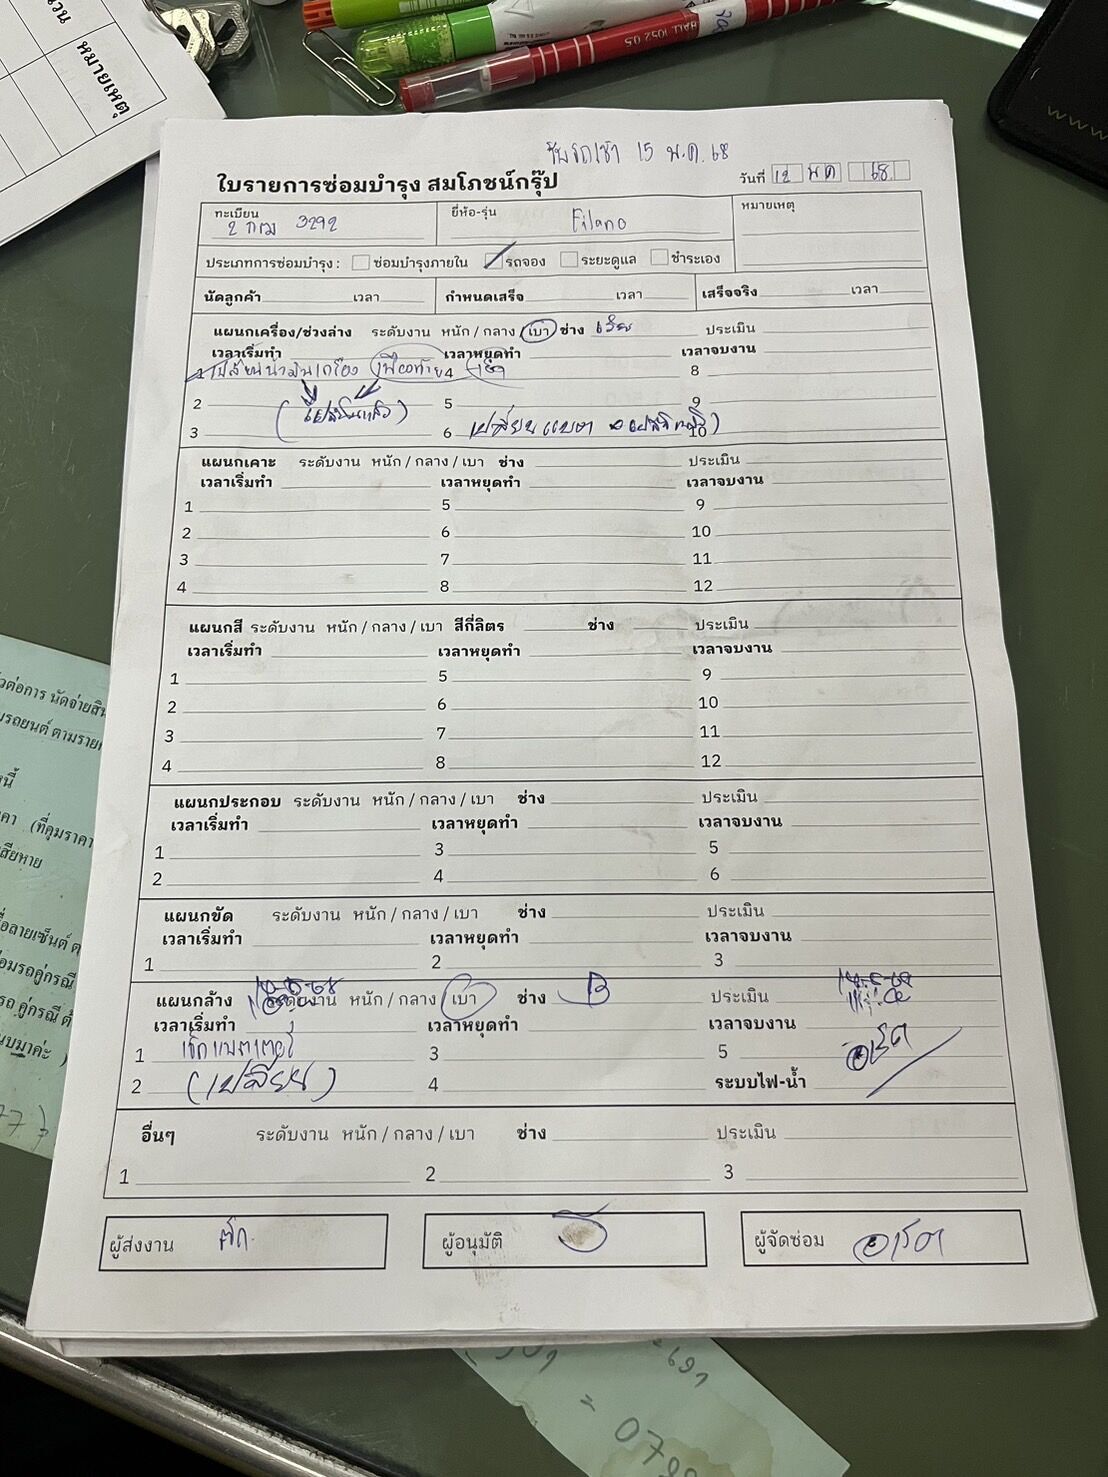 นวน หมายเหตุ
HALL 1052 0.5
รับรถเช้า 15 พ.ค. 68
ใบรายการซ่อมบำรุง สมโภชน์กรุ๊ป
วันที่ 12 พค 68
ทะเบียน 3292 ยี่ห้อ-รุ่น Filano หมายเหตุ
ประเภทการซ่อมบำรุง : ซ่อมบำรุงภายใน รถจอง ระยะดูแล ชำระเอง
นัดลูกค้า เวลา กำหนดเสร็จ เวลา เสร็จจริง เวลา
แผนกเครื่อง/ช่วงล่าง ระดับงาน หนัก / กลาง / เบา ช่าง ประเมิน
เวลาเริ่มทำ เวลาหยุดทำ เวลาจบงาน
1 เปลี่ยนน้ำมันเครื่อง เฟืองท้าย 4 8
2 5 9
3 6 เปลี่ยนแบต 10
แผนกเคาะ ระดับงาน หนัก / กลาง / เบา ช่าง ประเมิน
เวลาเริ่มทำ เวลาหยุดทำ เวลาจบงาน
1 5 9
2 6 10
3 7 11
4 8 12
แผนกสี ระดับงาน หนัก / กลาง / เบา สีกี่ลิตร ช่าง ประเมิน
เวลาเริ่มทำ เวลาหยุดทำ เวลาจบงาน
1 5 9
2 6 10
3 7 11
4 8 12
แผนกประกอบ ระดับงาน หนัก / กลาง / เบา ช่าง ประเมิน
เวลาเริ่มทำ เวลาหยุดทำ เวลาจบงาน
1 3 5
2 4 6
แผนกขัด ระดับงาน หนัก / กลาง / เบา ช่าง ประเมิน
เวลาเริ่มทำ เวลาหยุดทำ เวลาจบงาน
1 2 3
แผนกล้าง ระดับงาน หนัก / กลาง / เบา ช่าง B ประเมิน
เวลาเริ่มทำ เวลาหยุดทำ เวลาจบงาน
1 เช็คแบตเตอรี่ 3 5
2 (เปลี่ยน) 4 ระบบไฟ-น้ำ
อื่นๆ ระดับงาน หนัก / กลาง / เบา ช่าง ประเมิน
1 2 3
ผู้ส่งงาน ผู้อนุมัติ ผู้จัดซ่อม
วต่อการ นัดจ่ายสิน
มรถยนต์ ตามราย
นี้
คา (ที่คุมราคา
สียหาย
ื่อลายเซ็นต์ ต
อมรถคู่กรณี
รถ คู่กรณี ต้
นบมาค่ะ )